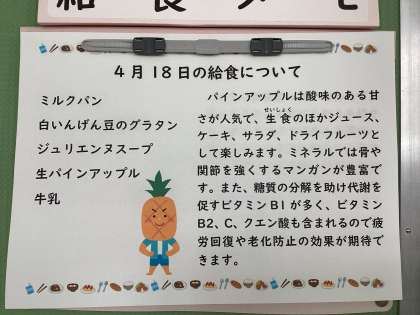 給食メモ
4月18日の給食について
ミルクパン
白いんげん豆のグラタン
ジュリエンヌスープ
生パインアップル
牛乳
パインアップルは酸味のある甘
さが人気で、生食のほかジュース、
せいしょく
ケーキ、サラダ、ドライフルーツと
して楽しみます。ミネラルでは骨や
関節を強くするマンガンが豊富で
す。また、糖質の分解を助け代謝を
促すビタミンB1が多く、ビタミン
B2、C、クエン酸も含まれるので疲
労回復や老化防止の効果が期待で
きます。